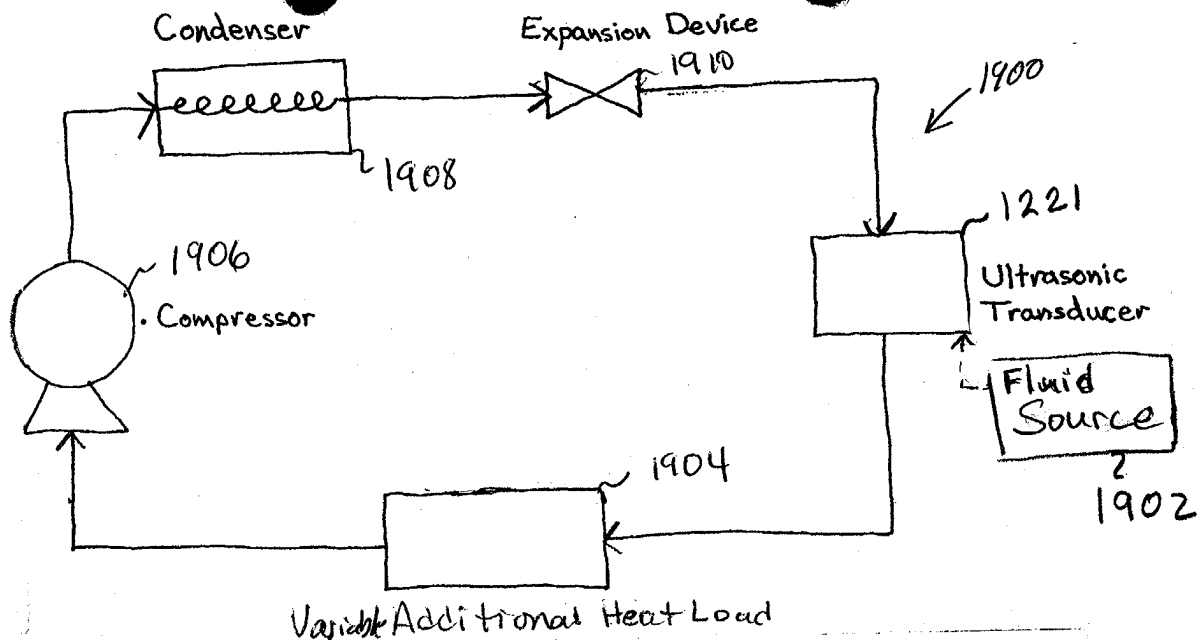 Condenser
Expansion Device
1910
1900
1908
1221
1906
Ultrasonic
Transducer
Compressor
Fluid
Source
1904
1902
Variable Additional Heat Load